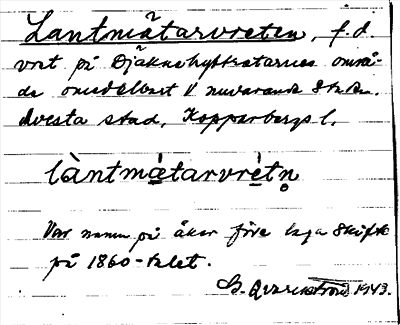 Lantmätarvreten, f.d.
vret på Djäknehyttetarnas områ-
de omedelbart V nuvarande Stn.
Avesta stad, Kopparbergs l.
làntmǽtarvrètn̥
Var namn på åker före laga skifte
på 1860-talet.
G. Qvarnström 1943.